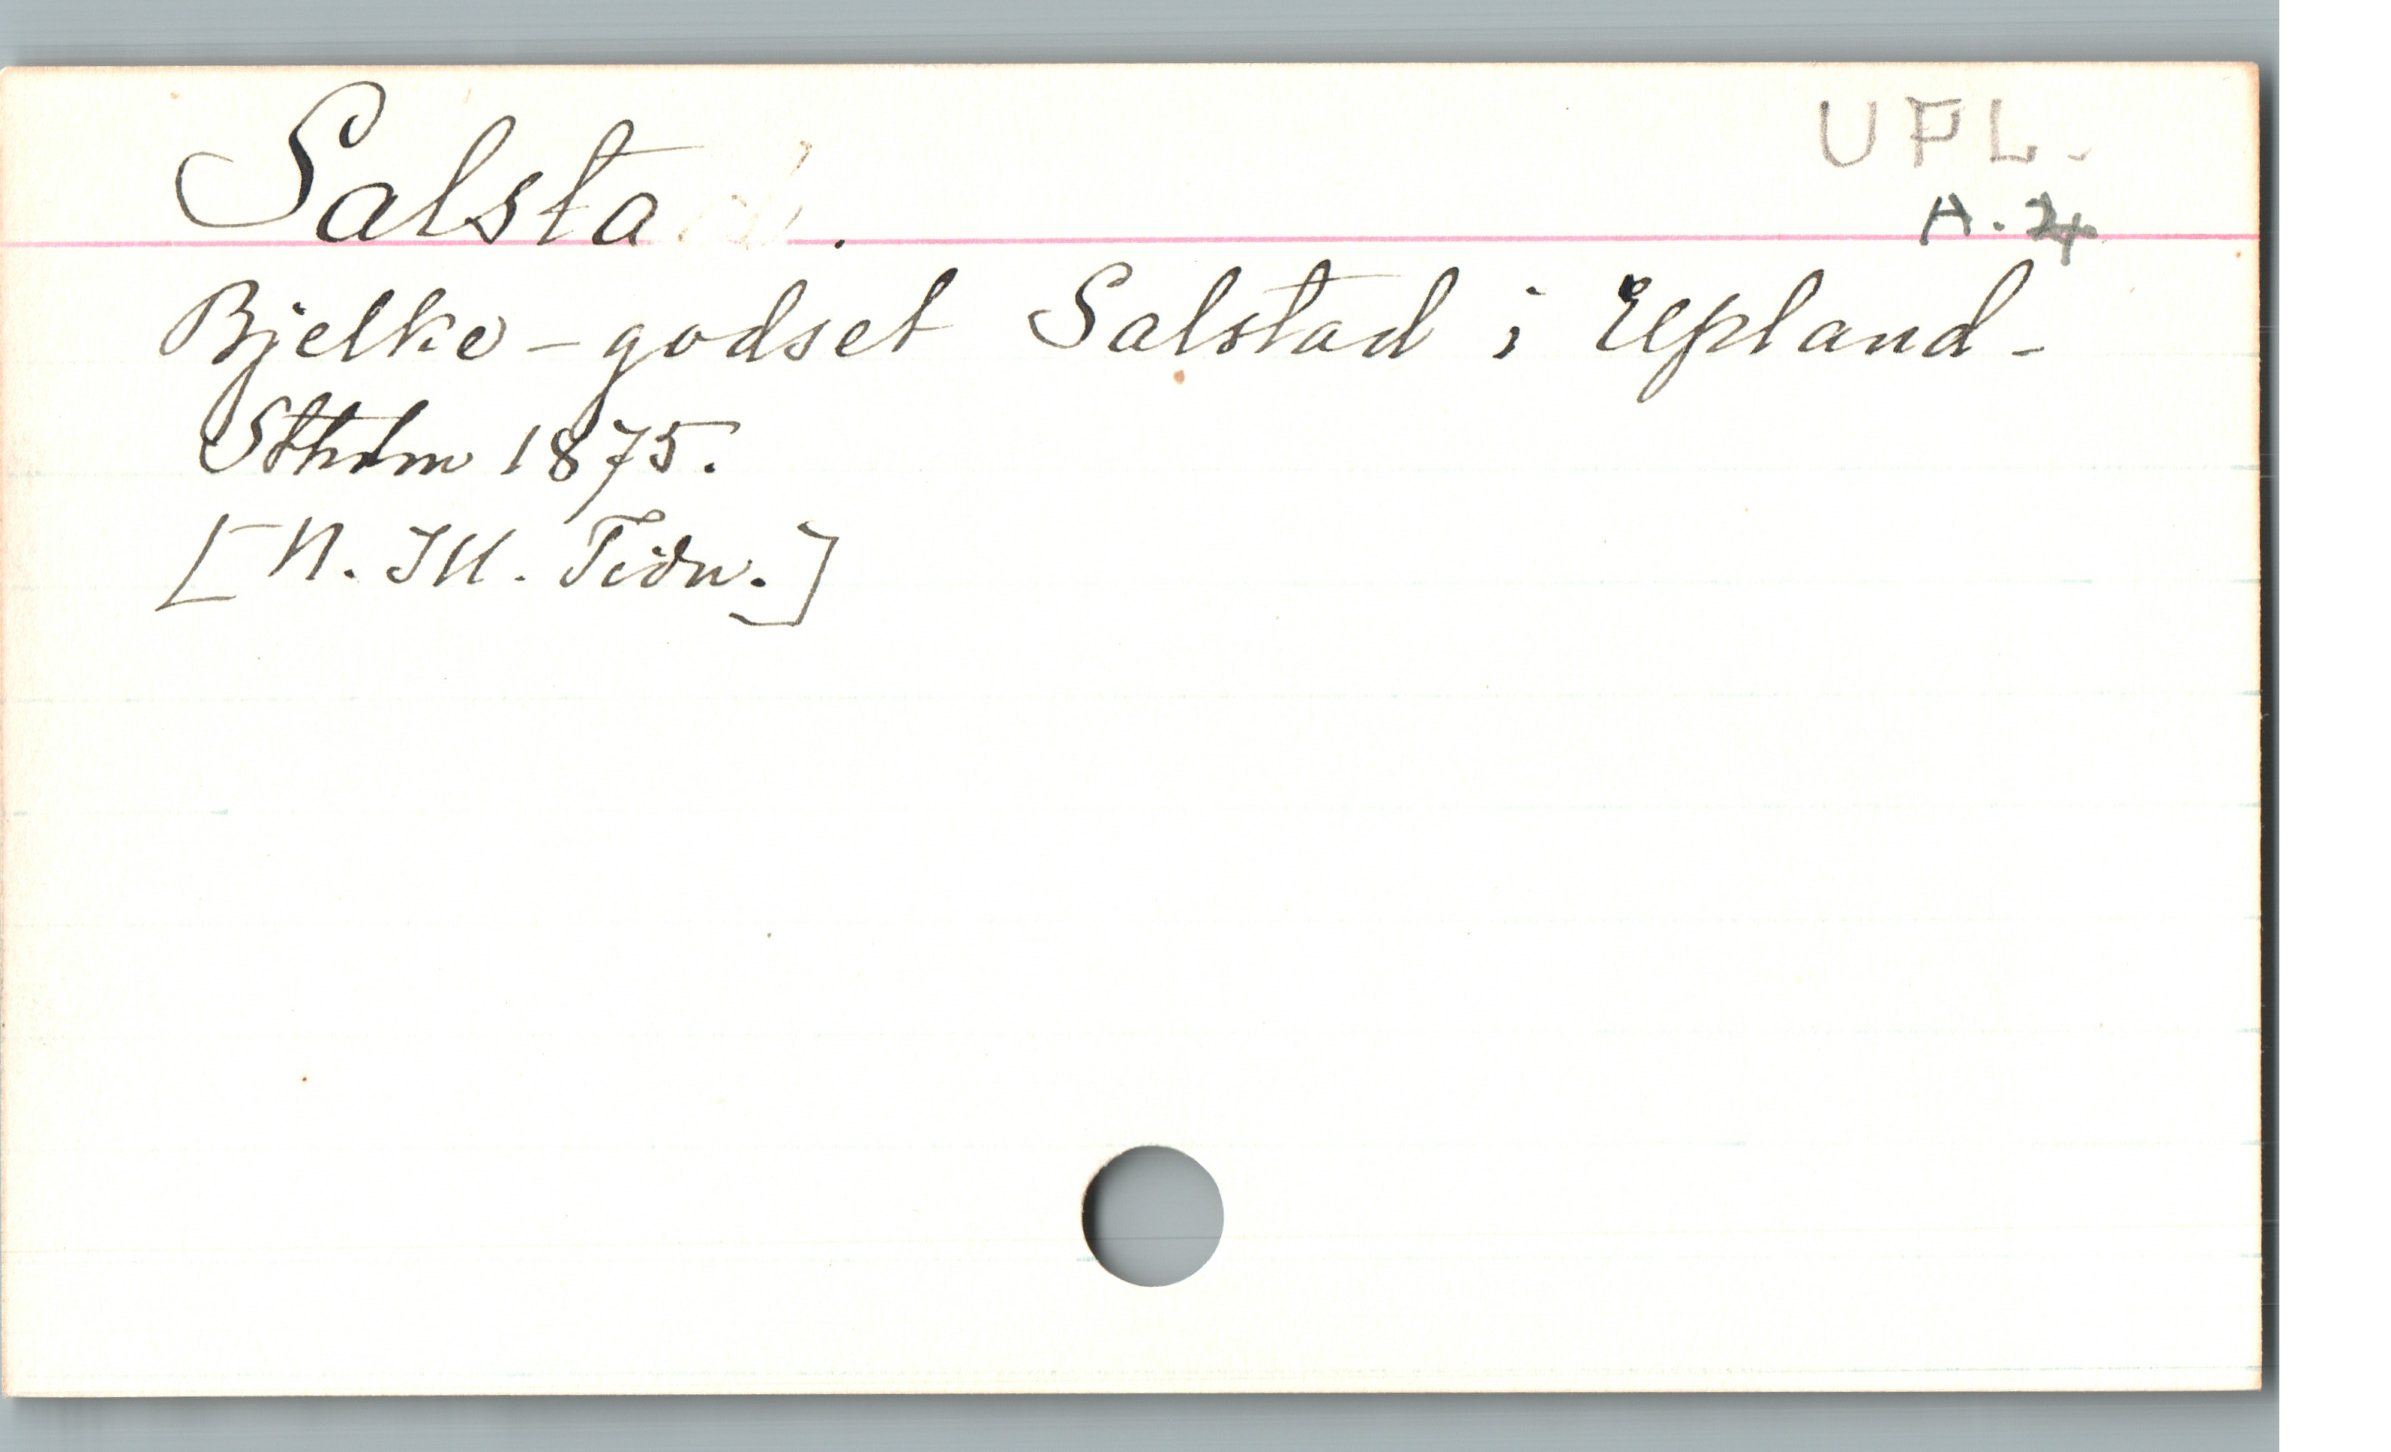 Salsta.
UPL.
A. 24.
Bjelke-godset Salstad i Upland-
Sthlm 1875.
[N. Ill. Tidn.]